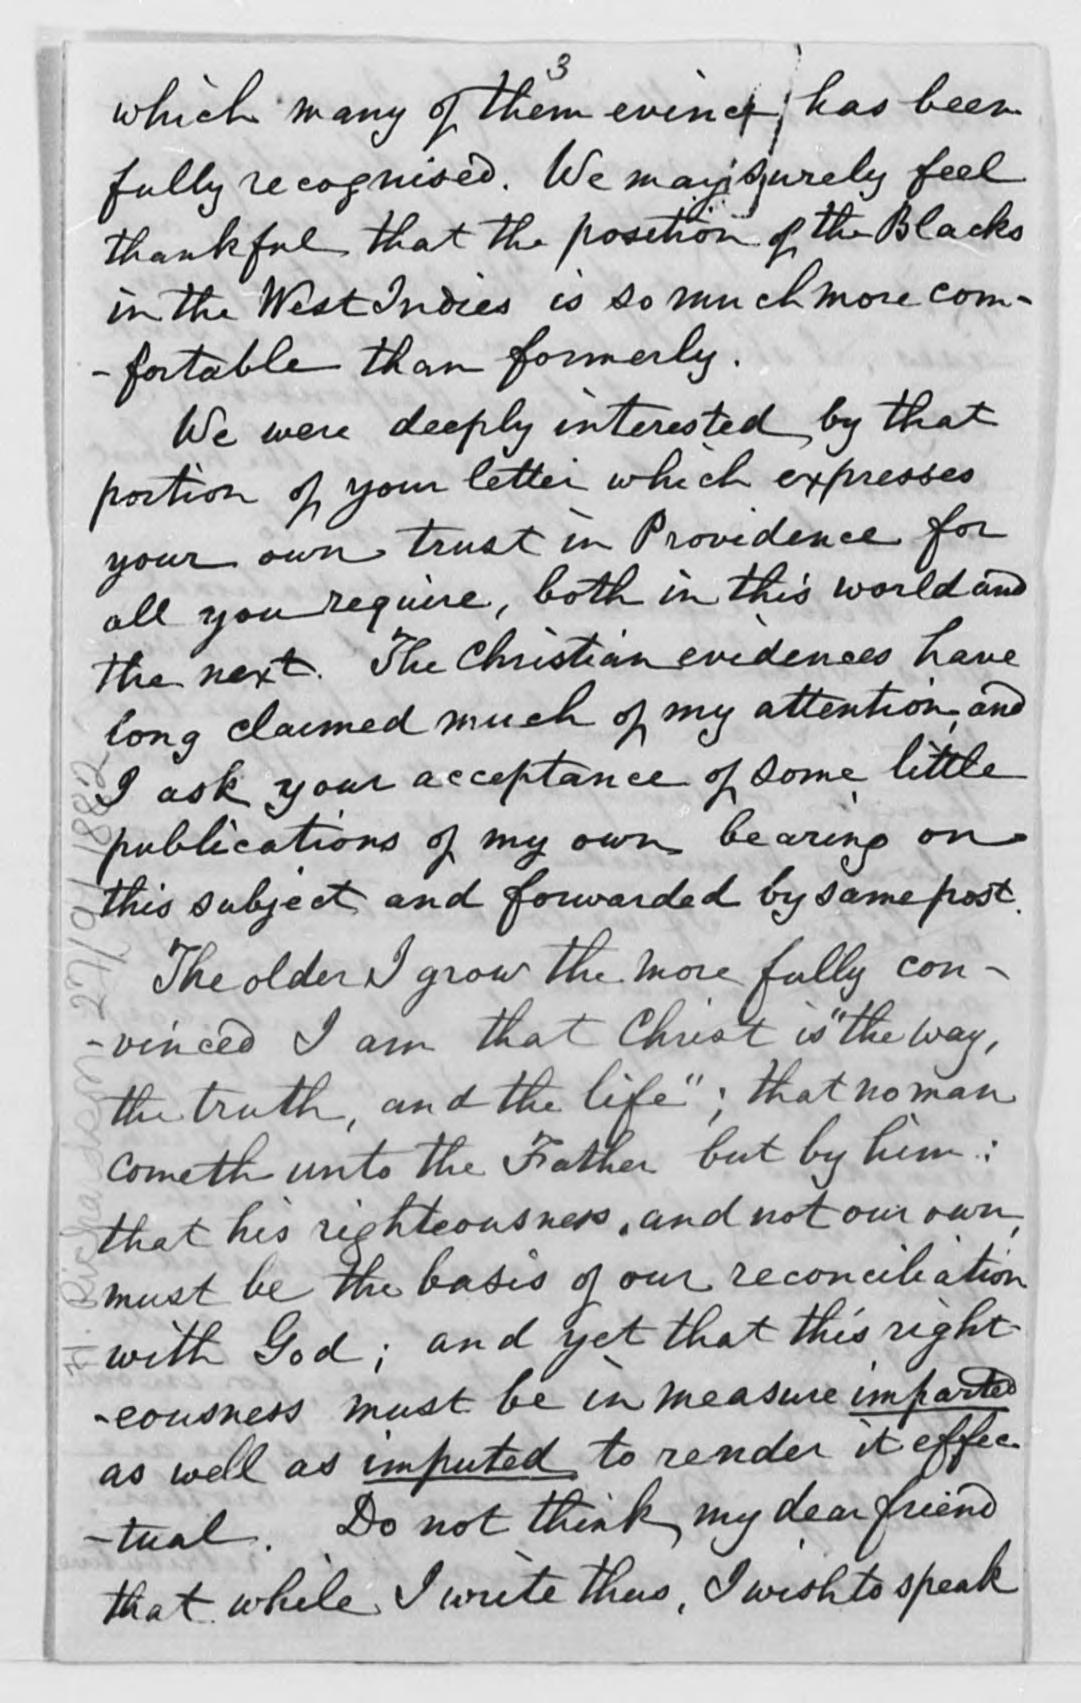 3
which many of them evince has been
fully recognised. We may surely feel
thankful that the position of the Blacks
in the West Indies is so much more com-
-fortable than formerly.
We were deeply interested by that
portion of your letter which expresses
your own trust in Providence for
all you require, both in this world and
the next. The Christian evidences have
long claimed much of my attention, and
I ask your acceptance of some little
publications of my own bearing on
this subject and forwarded by same post.
The older I grow the more fully con-
-vinced I am that Christ is "the way,
the truth, and the life"; that no man
cometh unto the Father but by him:
that his righteousness, and not our own,
must be the basis of our reconciliation
with God; and yet that this right-
-eousness must be in measure imparted
as well as imputed to render it effec-
-tual. Do not think, my dear friend
that while I write thus, I wish to speak
H. Richardson 27/9/1882